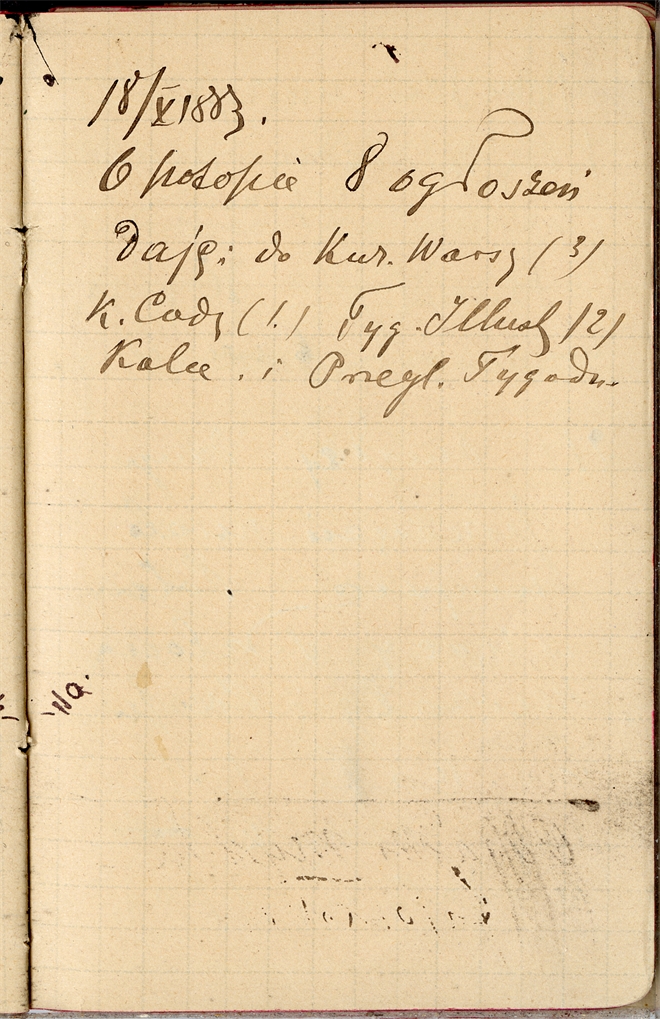 18/X 1883.
O potopie 8 ogłoszeń
Daję: do Kur. Warsz (3)
K. Codz (1.) Tyg. Illust (2)
Kolce . i Przegl. Tygodn.